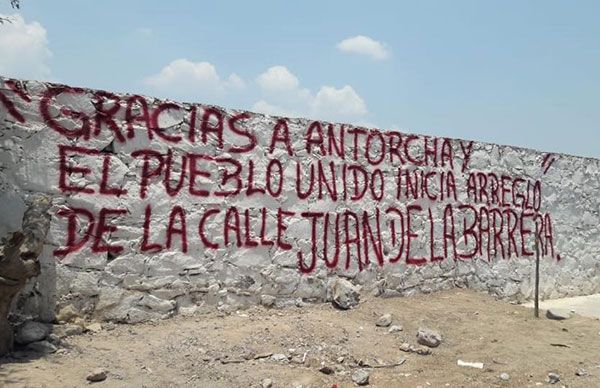 "GRACIAS A ANTORCHA Y
EL PUEBLO UNIDO INICIA ARREGLO
DE LA CALLE JUAN DE LA BARRERA."